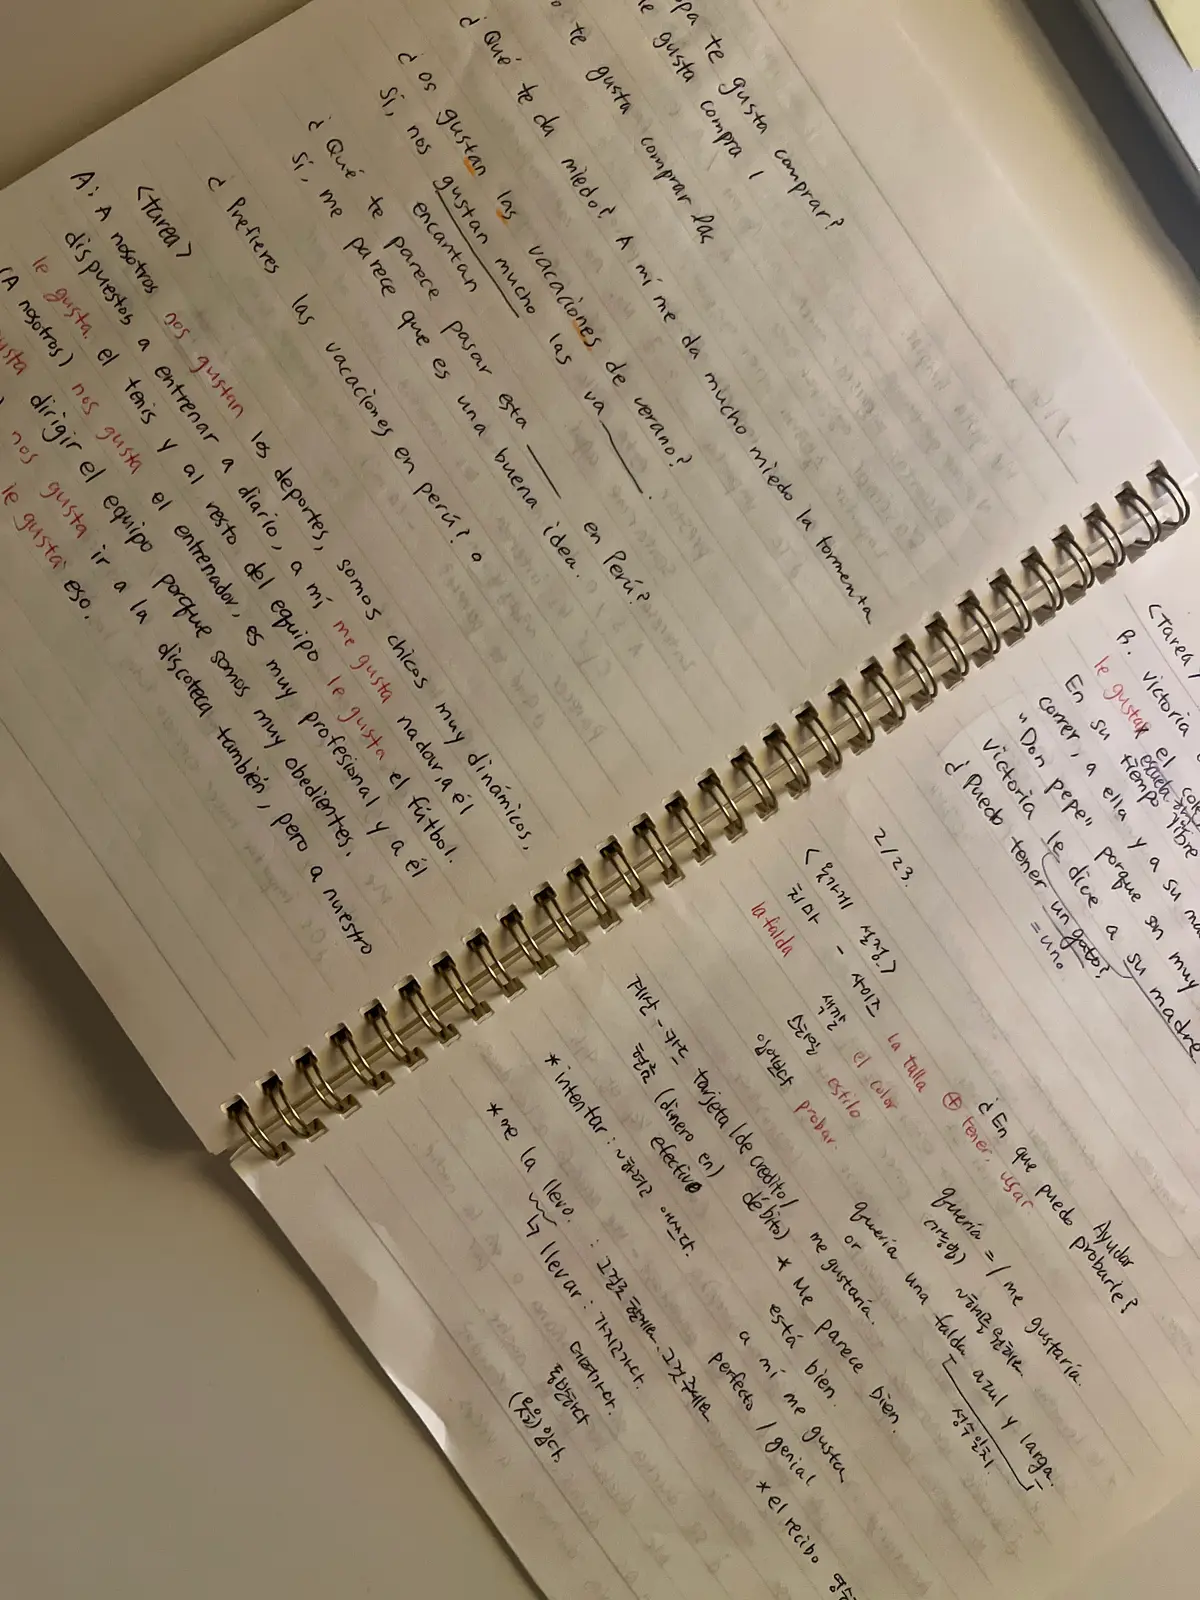 opa te gusta comprar?
le gusta compra
o te gusta comprar las
¿Qué te da miedo? A mí me da mucho miedo la tormenta
¿os gustan las vacaciones de verano?
Sí, nos gustan mucho las va ___.
encantan
¿Qué te parece pasar esta ___ en Perú?
Sí, me parece que es una buena idea.
¿Prefieres las vacaciones en perú? o
<tarea>
A: A nosotros nos gustan los deportes, somos chicos muy dinámicos,
dispuestos a entrenar a diario, a mí me gusta nadar, a él
le gusta el tenis y al resto del equipo le gusta el fútbol.
(A nosotros) nos gusta el entrenador, es muy profesional y a él
usta dirigir el equipo porque somos muy obedientes.
nos gusta ir a la discoteca también, pero a nuestro
le gusta eso.
<Tarea>
B. victoria
le gustan el cole
escuela
En su tiempo libre
correr, a ella y a su ma
"Don pepe" porque son muy
victoria le dice a su madre
¿Puedo tener un gato?
= uno
2/23.
<옷가게 설정>
치마 - 사이즈 la talla ⊕ tener, usar.
la falda
색깔 el color
스타일 estilo
입어보다 probar.
¿En que puedo Ayudar
probarle?
quería = / me gustaría.
quería una falda azul y larga.
or
me gustaría.
계산 - 카드 tarjeta (de crédito/
débito)
현금 (dinero en)
efectivo
* Me parece bien.
está bien.
a mí me gusta
perfecto / genial
* intentar : ~하려고 애쓰다.
* me la llevo. : 그걸로 할게요. 그것 주세요
↳ llevar : 가지고가다.
데려가다.
동반하다
입다.
* el recibo